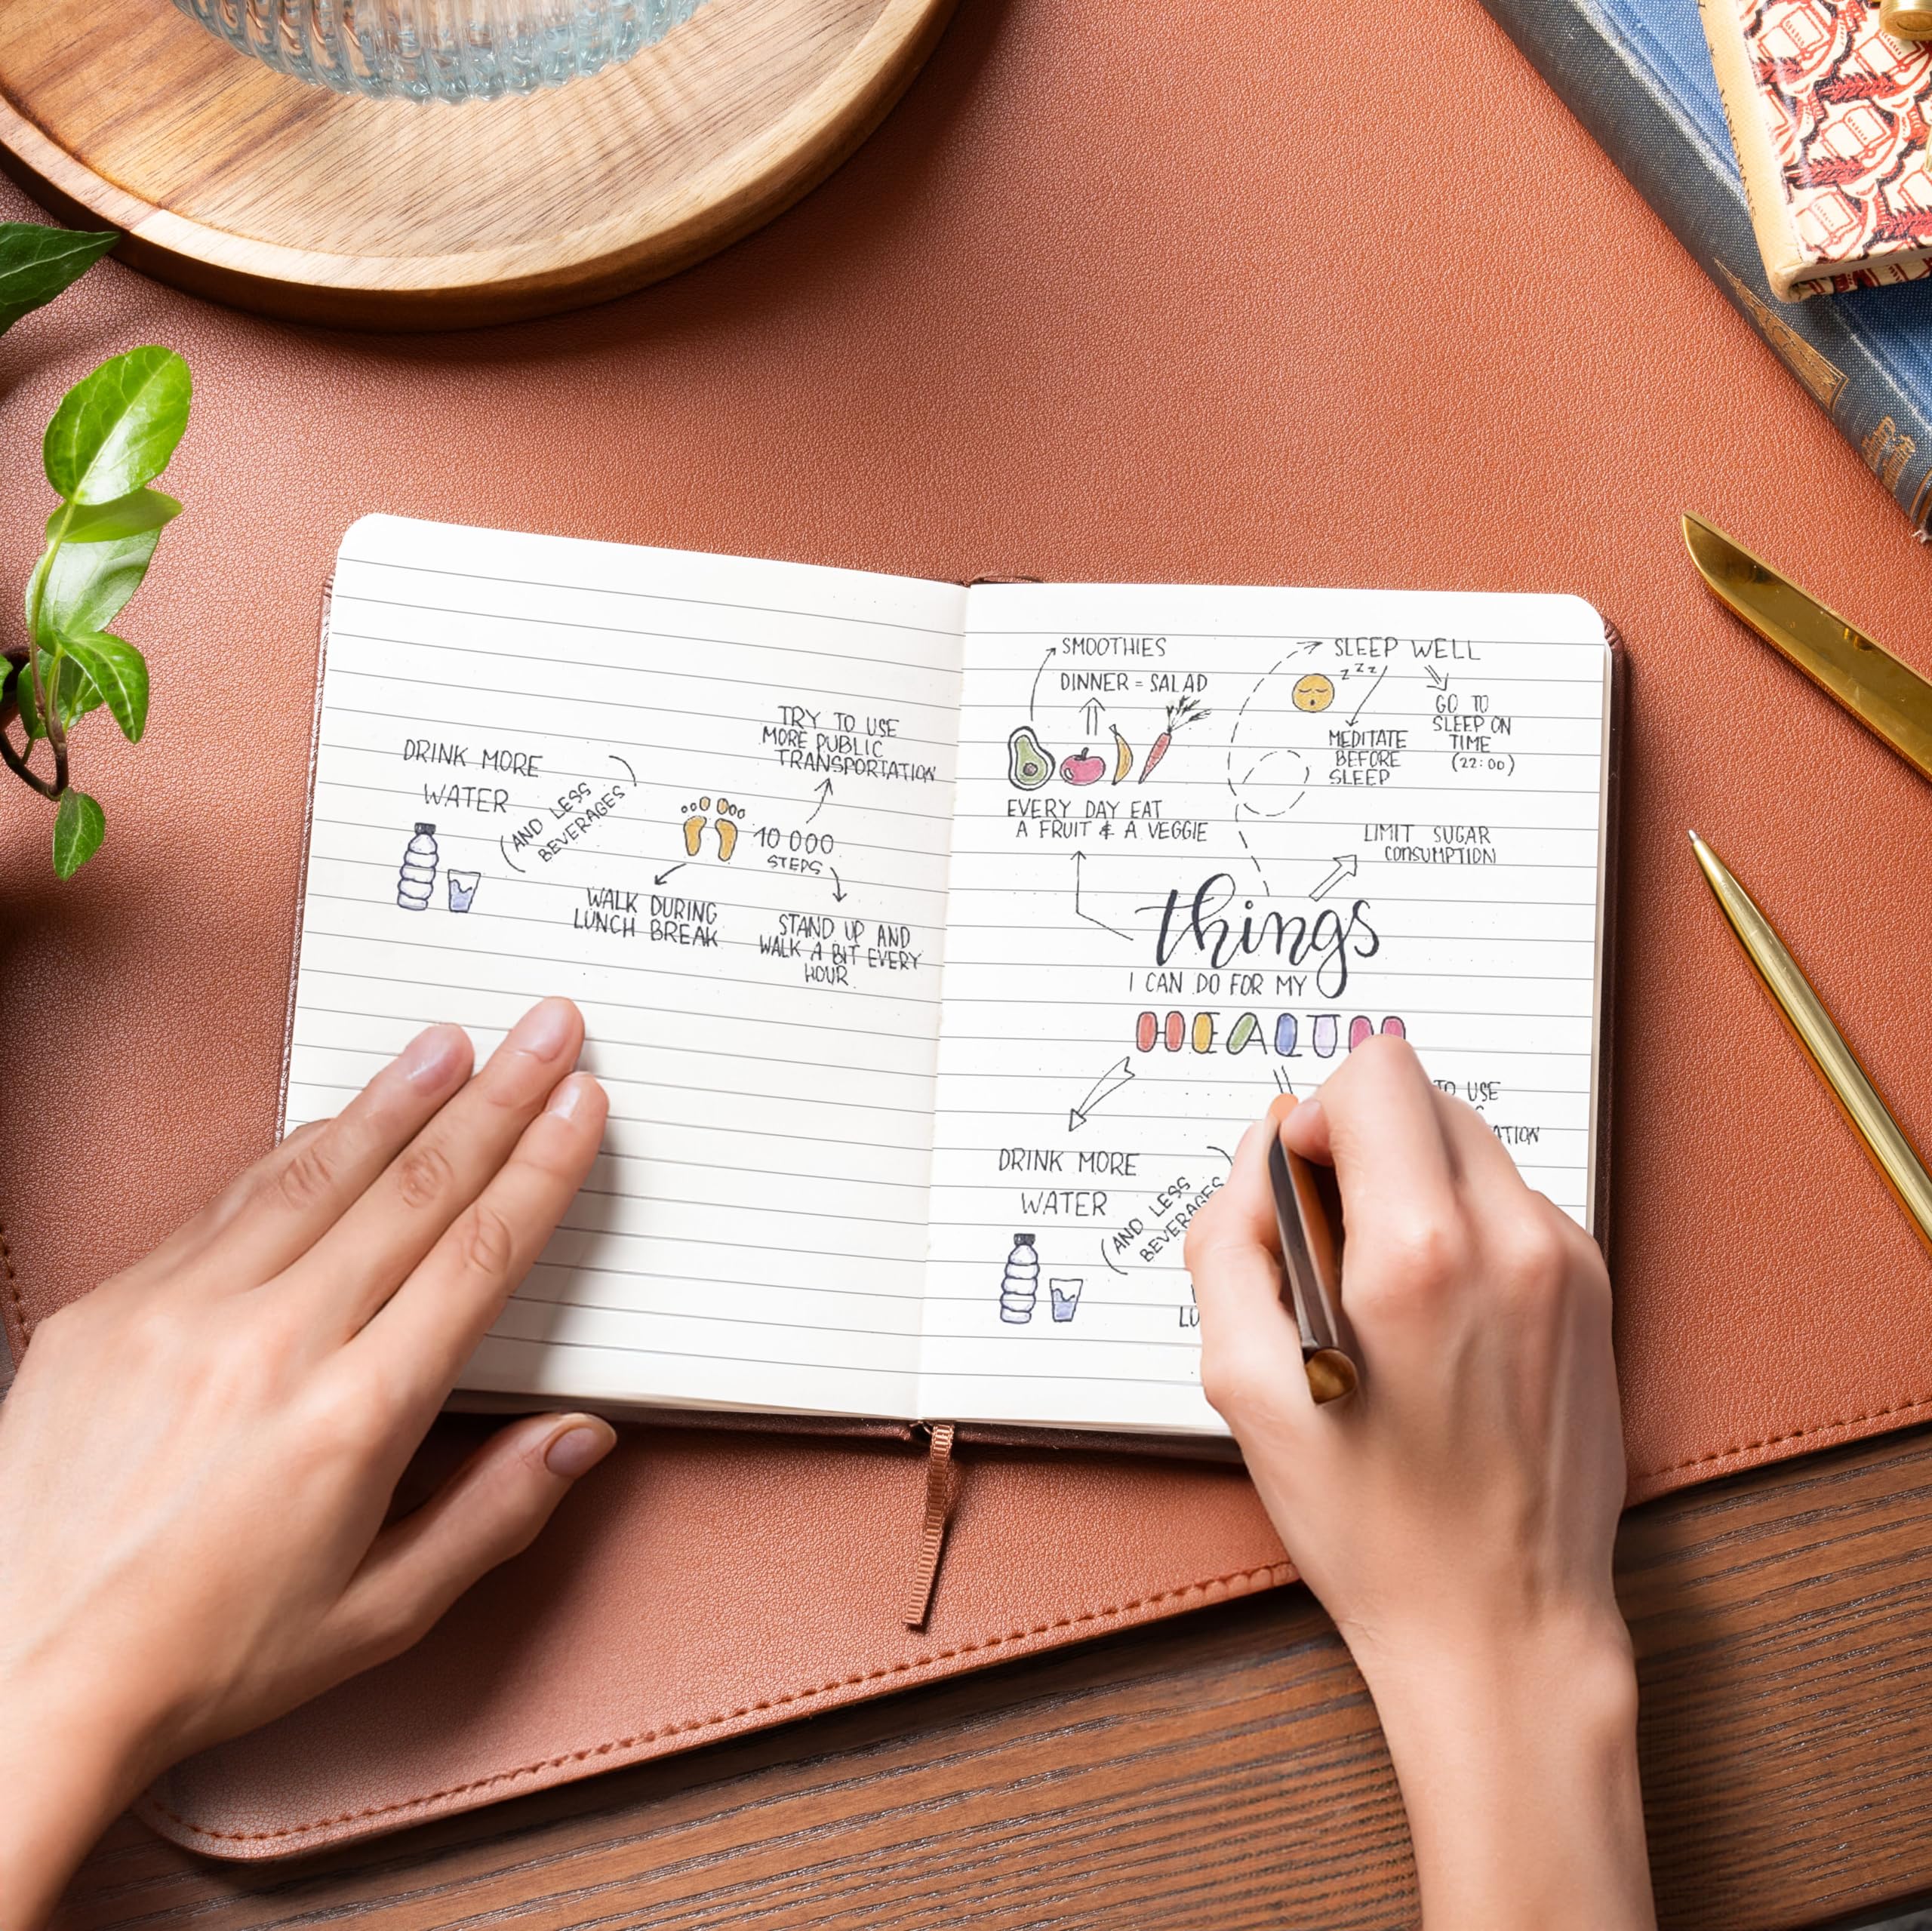 DRINK MORE
WATER
(AND LESS
BEVERAGES)
TRY TO USE
MORE PUBLIC
TRANSPORTATION
10 000
STEPS
WALK DURING
LUNCH BREAK
STAND UP AND
WALK A BIT EVERY
HOUR.
SMOOTHIES
DINNER = SALAD
EVERY DAY EAT
A FRUIT & A VEGGIE
SLEEP WELL
zzzz
MEDITATE
BEFORE
SLEEP
GO TO
SLEEP ON
TIME
(22:00)
LIMIT SUGAR
CONSUMPTION
things
I CAN DO FOR MY
HEALTH
DRINK MORE
WATER
(AND LESS
BEVERAGES
TO USE